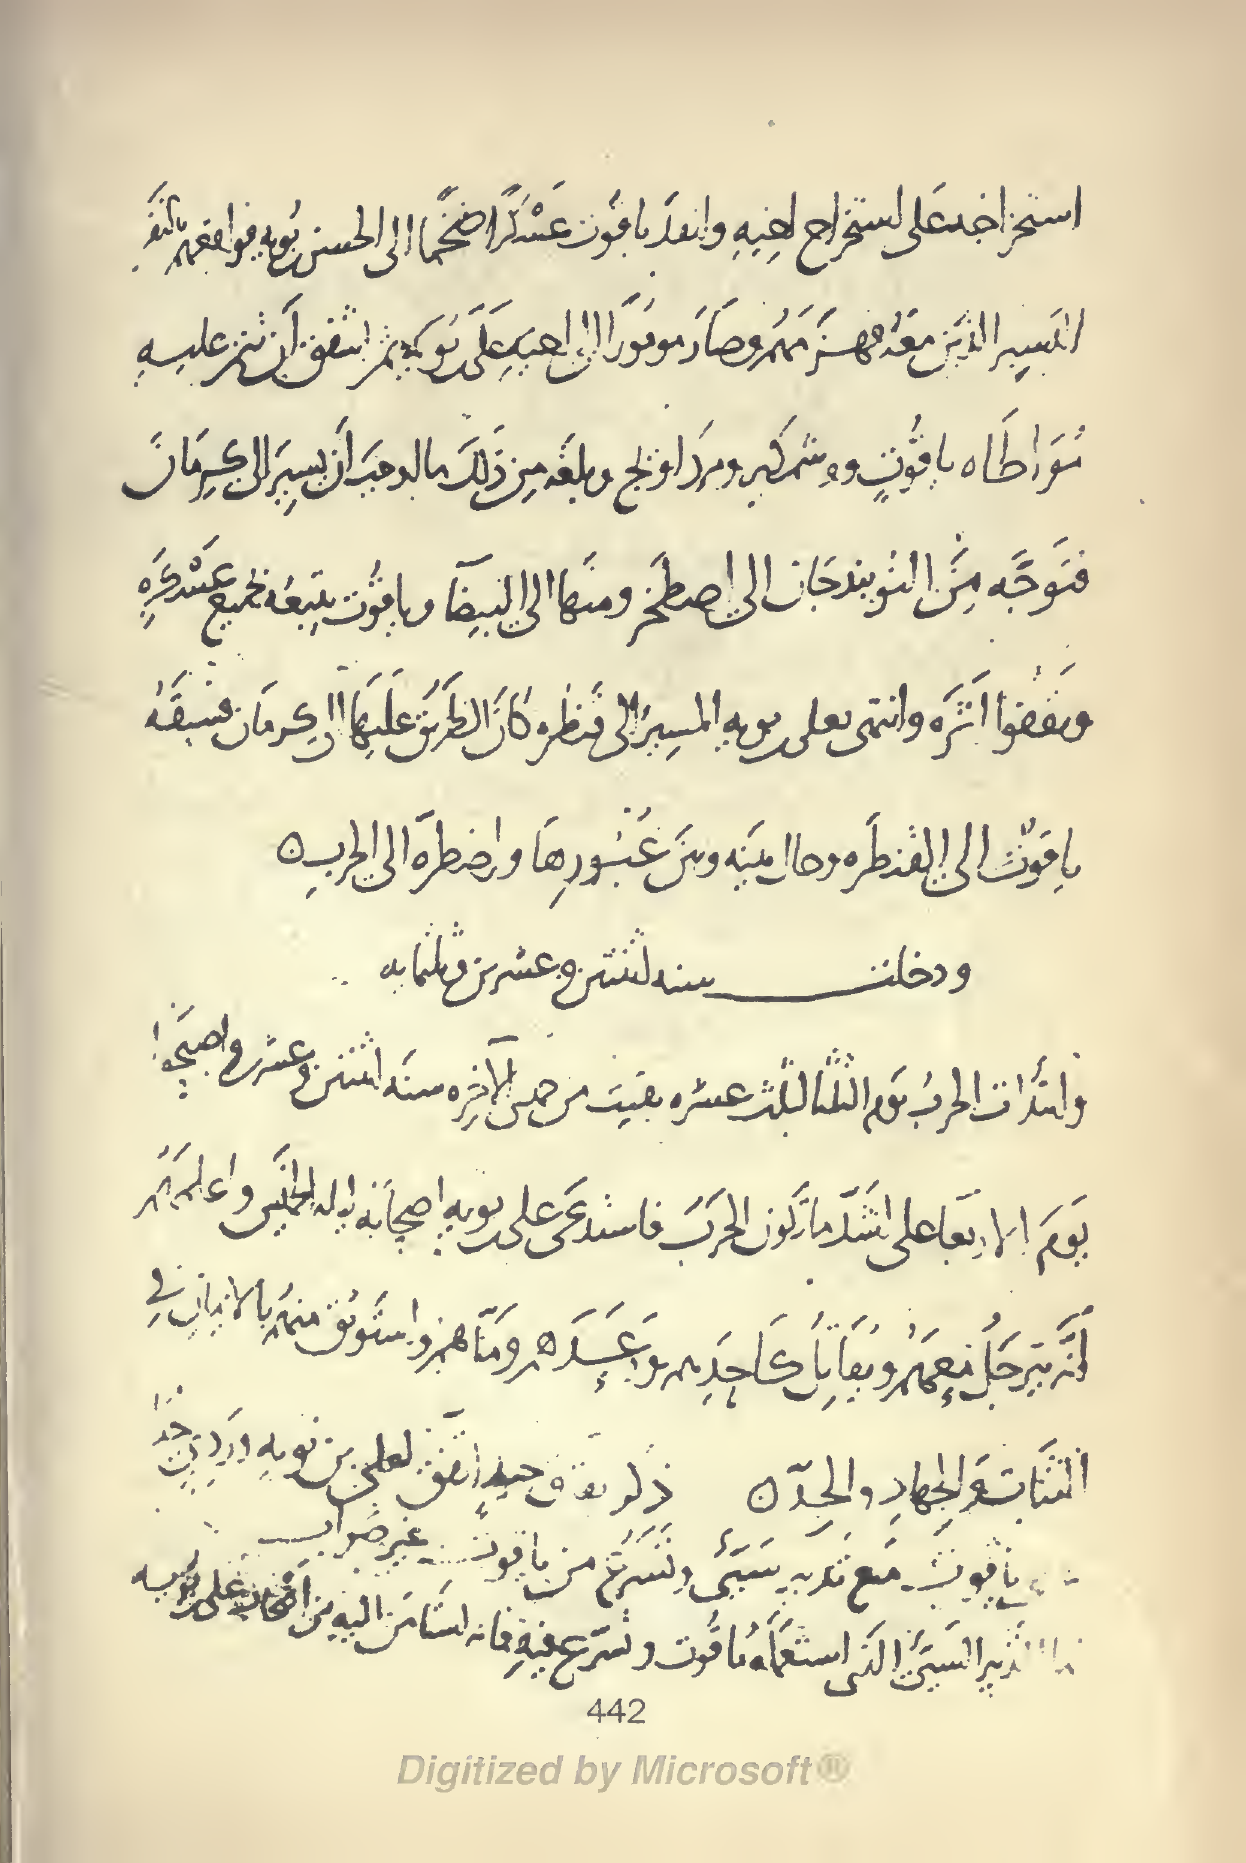 استخراجه على استخراج اخيه وانفذ ياقوت عَسْكرًا ضخمًا الى الحسن بن بُويه فواقعهم بالنفر
اليَسِير الذين معَهُ فهزمَهُم وصَارَ موفُورًا الى اخيه عَلى بن بُوَيه ثم اشفق أن تتم عليه
مُوَاطَاه ياقُوتٍ ووشمكير ومرداويج وبلغه مِن ذَلِكَ ما اوجب أن يسيرَ الى كِرمَان
فتَوجَّه مِنَ النُوبندجَان الى اصطخر ومنها الى البيضا وياقُوت يتبعُه بجميع عَسْكرَهِ
ويقفُوا أثرَه وانتهى بعلى بن بويه المسِيرُ الى قنطره كانَ الطَريق عَليهَا الى كِرمَان فسبقَهُ
ياقوتُ الى القنطره وحال بينه وبين عُبُورِهَا واضطره الى الحربِ ○
ودخلت سنه اثنتين وعشرين وثلثمايه
وابتدأت الحربُ يَوم الثلثا لثلث عشره بقيت من جمدى الآخِره سنَه اثنتين وعشرين واصبحُوا
يَومَ الاربعَا على اشَدّ ما تكون الحربُ فاستدعى على بن بويه اصحَابَه ليله الخميس واعلمَهُم
أنَّه يترجَّل معهُم ويُقَاتِلُ كاحَدِهم ووَعَدَهم ومَنّاهم واستَوثق منهُم بالايمَانِ فى
الثبَات والجهادِ والجِدّ ○ ذِكر اتفاقٍ جيد اتفق لعلى بن بويه
ياقُوت مَع تدبيرٍ سَيّئ وتَسَرُّع من ياقوت غير صَواب
التَدبير السَيّئ الذى استعمَلَهُ ياقُوت وتسَرّع فيهِ فانه استَامَن اليه من اصحاب على بن بُويه
442
Digitized by Microsoft®